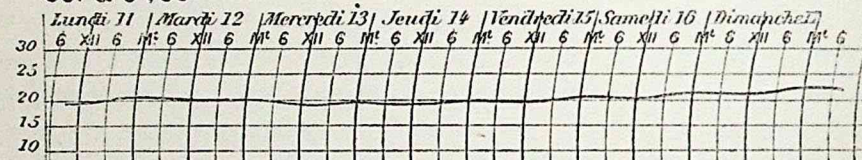 Lundi 11 Mardi 12 Mercredi 13 Jeudi 14 Vendredi 15 Samedi 16 Dimanche 17
6 XII 6 Mt 6 XII 6 Mt 6 XII 6 Mt 6 XII 6 Mt 6 XII 6 Mt 6 XII 6 Mt 6 XII 6 Mt 6
30
25
20
15
10